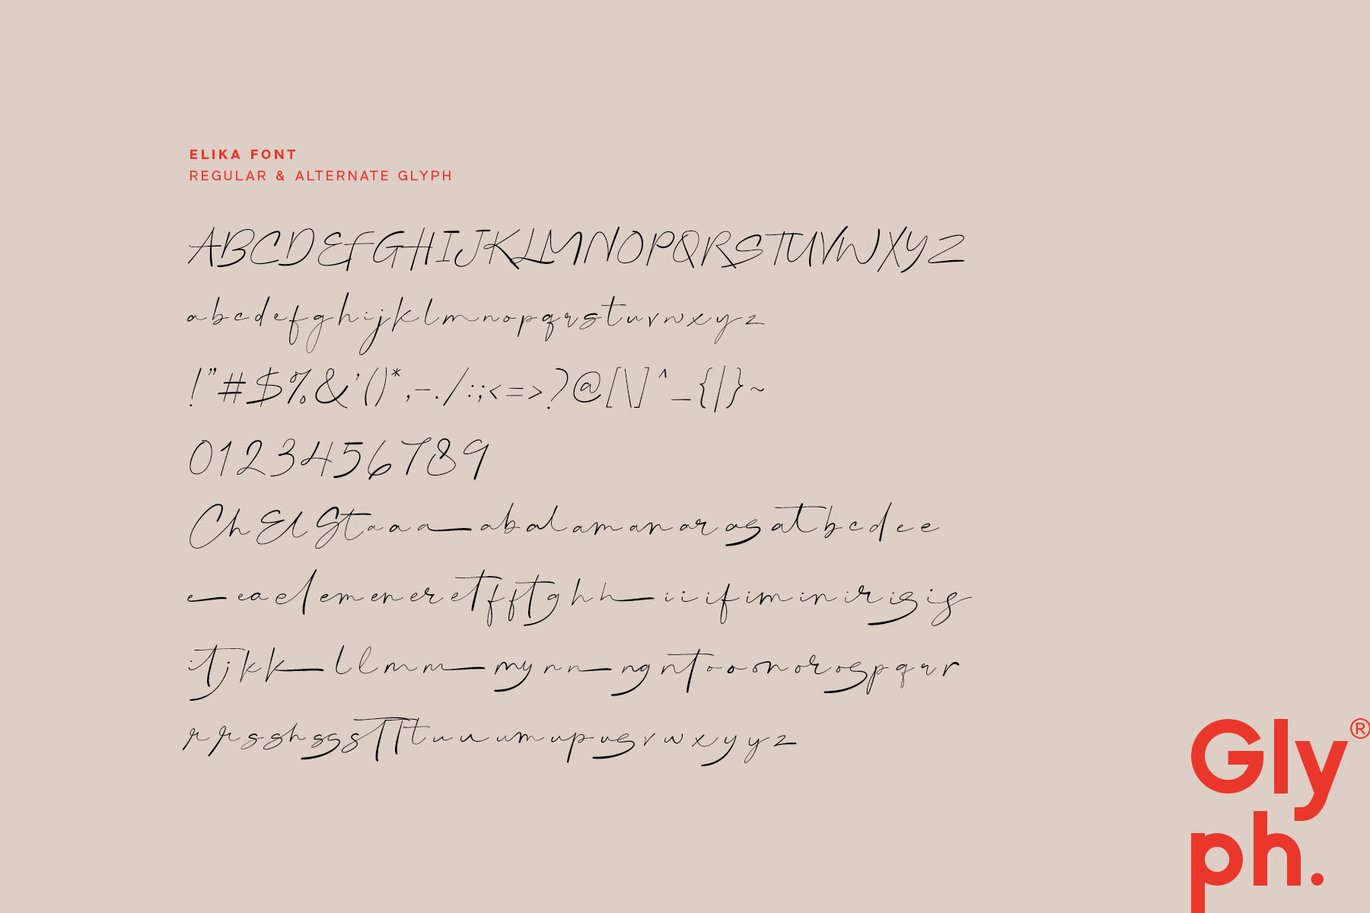 ELIKA FONT
REGULAR & ALTERNATE GLYPH
ABCDEFGHIJKLMNOPQRSTUVWXYZ
abcdefghijklmnopqrstuvwxyz
!"#$%&'()*,-./:;<=>?@[\]^_{|}~
0123456789
Ch El St a a a a ab al am an ar as at b c d e e
e ea el em en er et f ft g h h i i if im in ir is is
it j k k l l m m my n n ng nt o o on or os p q r r
r r s sh ss s T T t u u um up us v w x y y z
Gly®
ph.